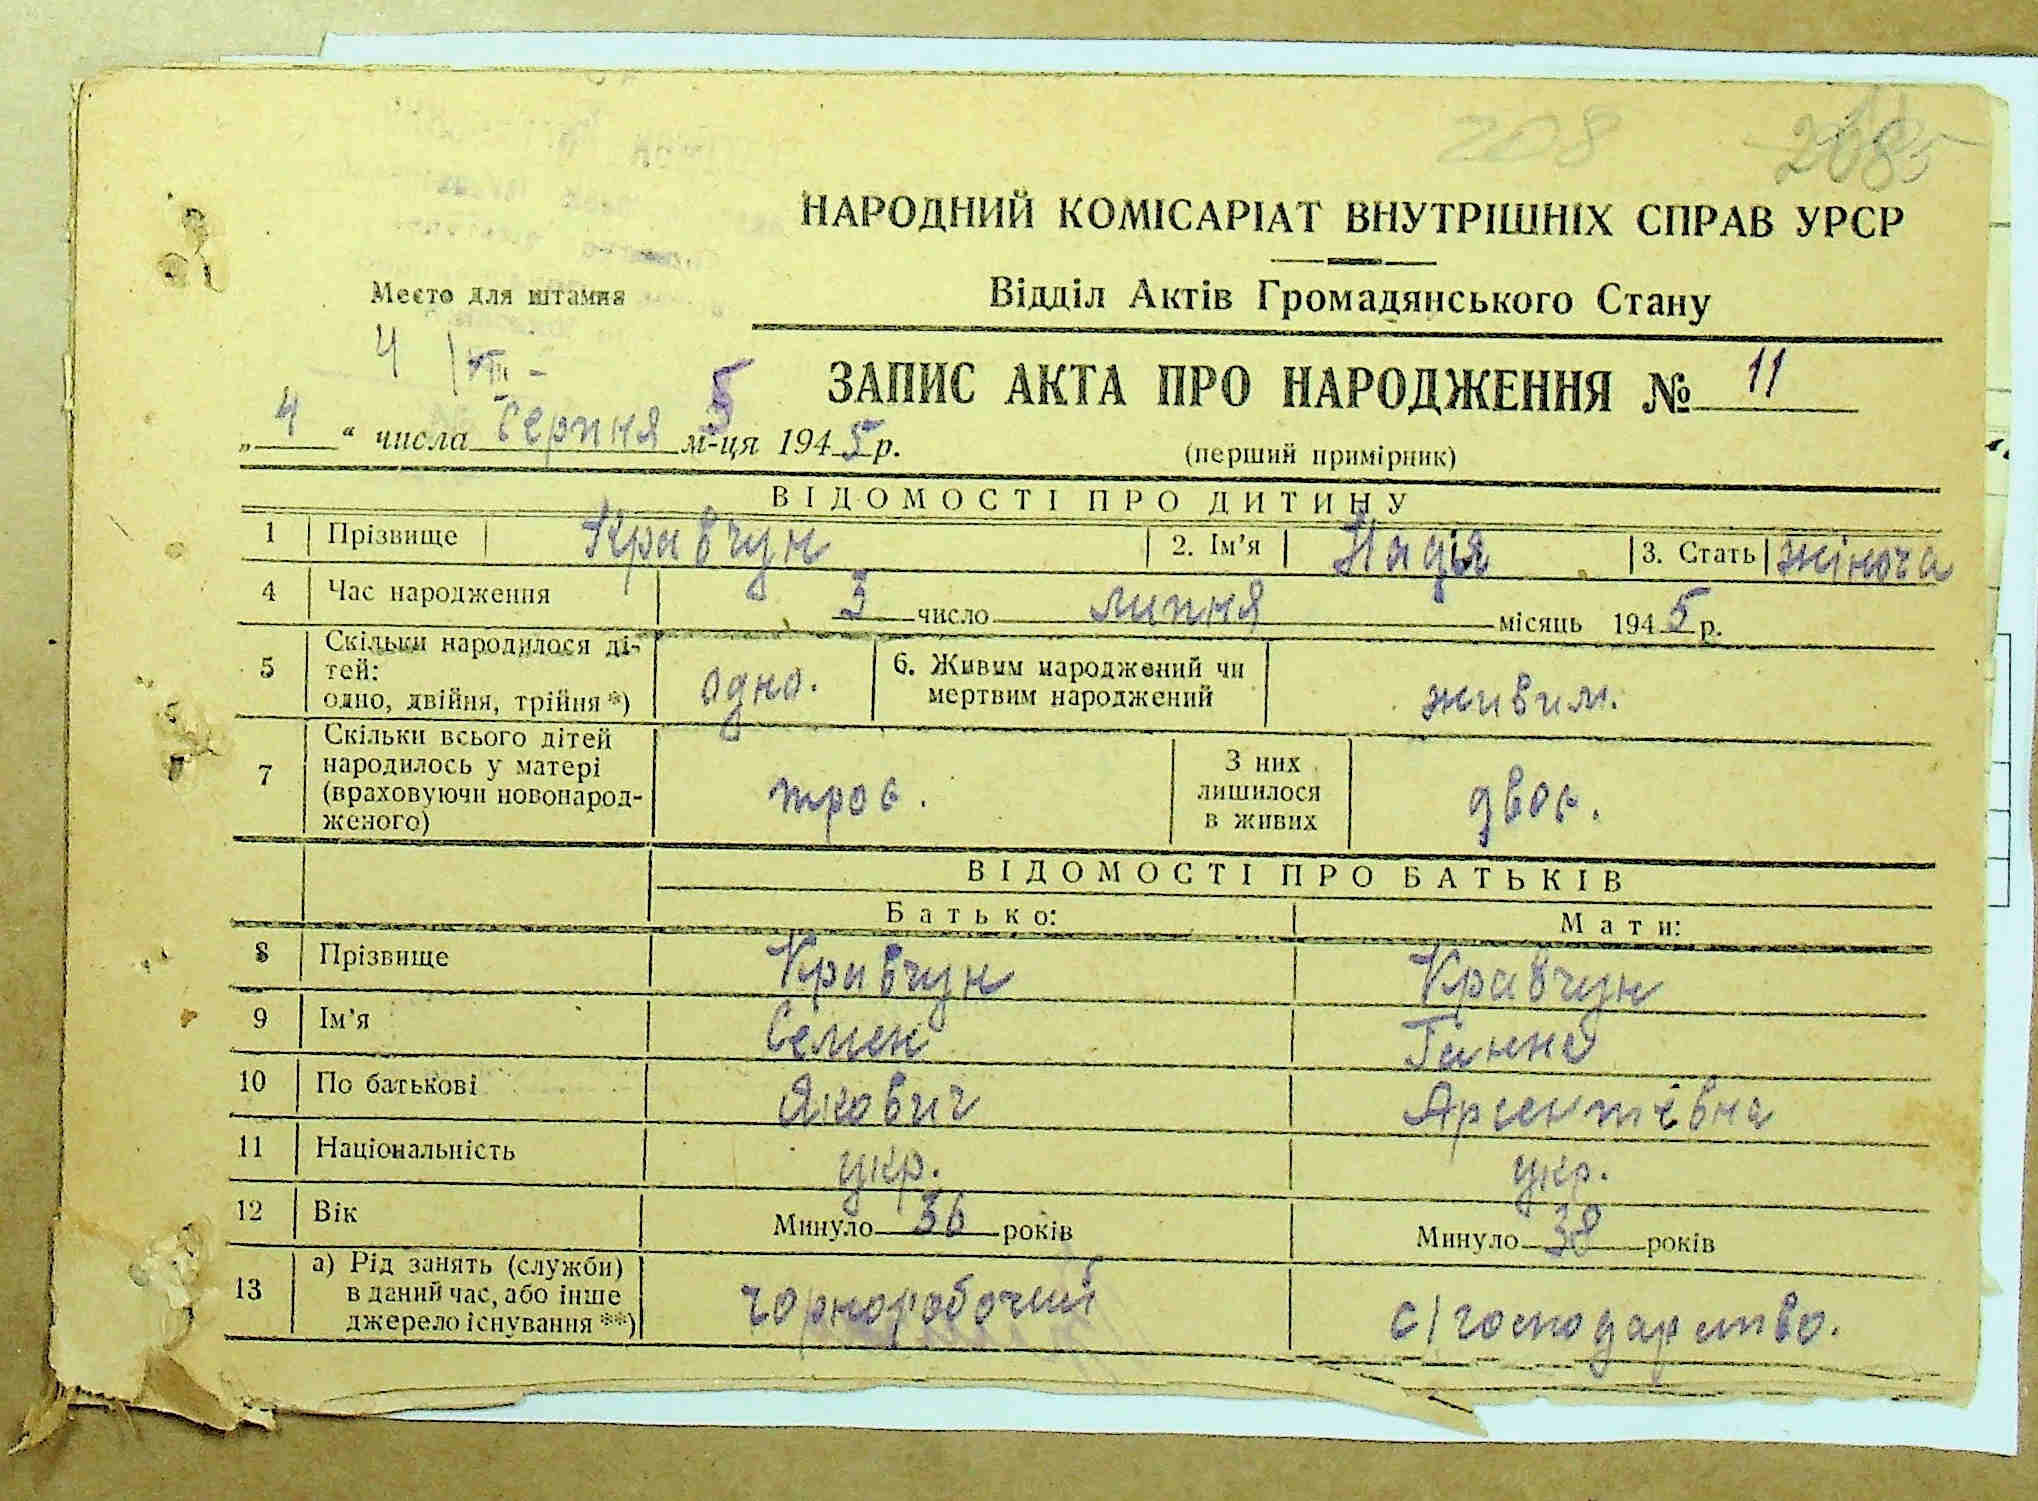 208 2085
НАРОДНИЙ КОМІСАРІАТ ВНУТРІШНІХ СПРАВ УРСР
Место для штампа
Відділ Актів Громадянського Стану
4 VIII - 5
ЗАПИС АКТА ПРО НАРОДЖЕННЯ № 11
„ 4 “ числа серпня м-ця 1945 р.
(перший примірник)
ВІДОМОСТІ ПРО ДИТИНУ
1 Прізвище Кравчун 2. Ім’я Надія 3. Стать жіноча
4 Час народження 3 число липня місяць 1945 р.
5 Скільки народилося ді-
тей:
одно, двійня, трійня *) одно. 6. Живим народжений чи
мертвим народжений живим.
7 Скільки всього дітей
народилось у матері
(враховуючи новонарод-
женого) троє. З них
лишилося
в живих двоє.
ВІДОМОСТІ ПРО БАТЬКІВ
Батько: Мати:
8 Прізвище Кравчун Кравчун
9 Ім’я Семен Ганна
10 По батькові Якович Арсентівна
11 Національність укр. укр.
12 Вік Минуло 36 років Минуло 38 років
13 а) Рід занять (служби)
в даний час, або інше
джерело існування **) чорноробочий с/господарство.